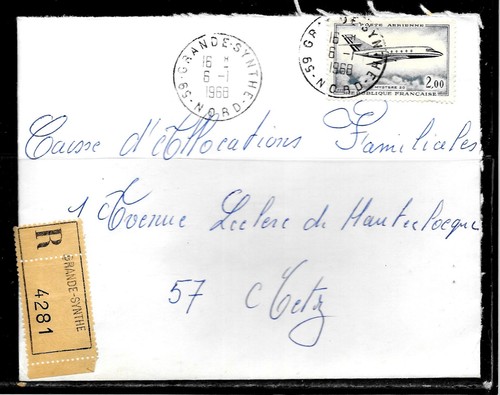 GRANDE-SYNTHE
16 H
6-1
1968
59-NORD
GRANDE-SYNTHE
16 H
6-1
1968
59-NORD
POSTE AERIENNE
MYSTERE 20
2,00
REPUBLIQUE FRANÇAISE
Caisse d'Allocations Familiales
1 Avenue Leclerc de Hauteclocque
57 Metz
R
GRANDE-SYNTHE
4281